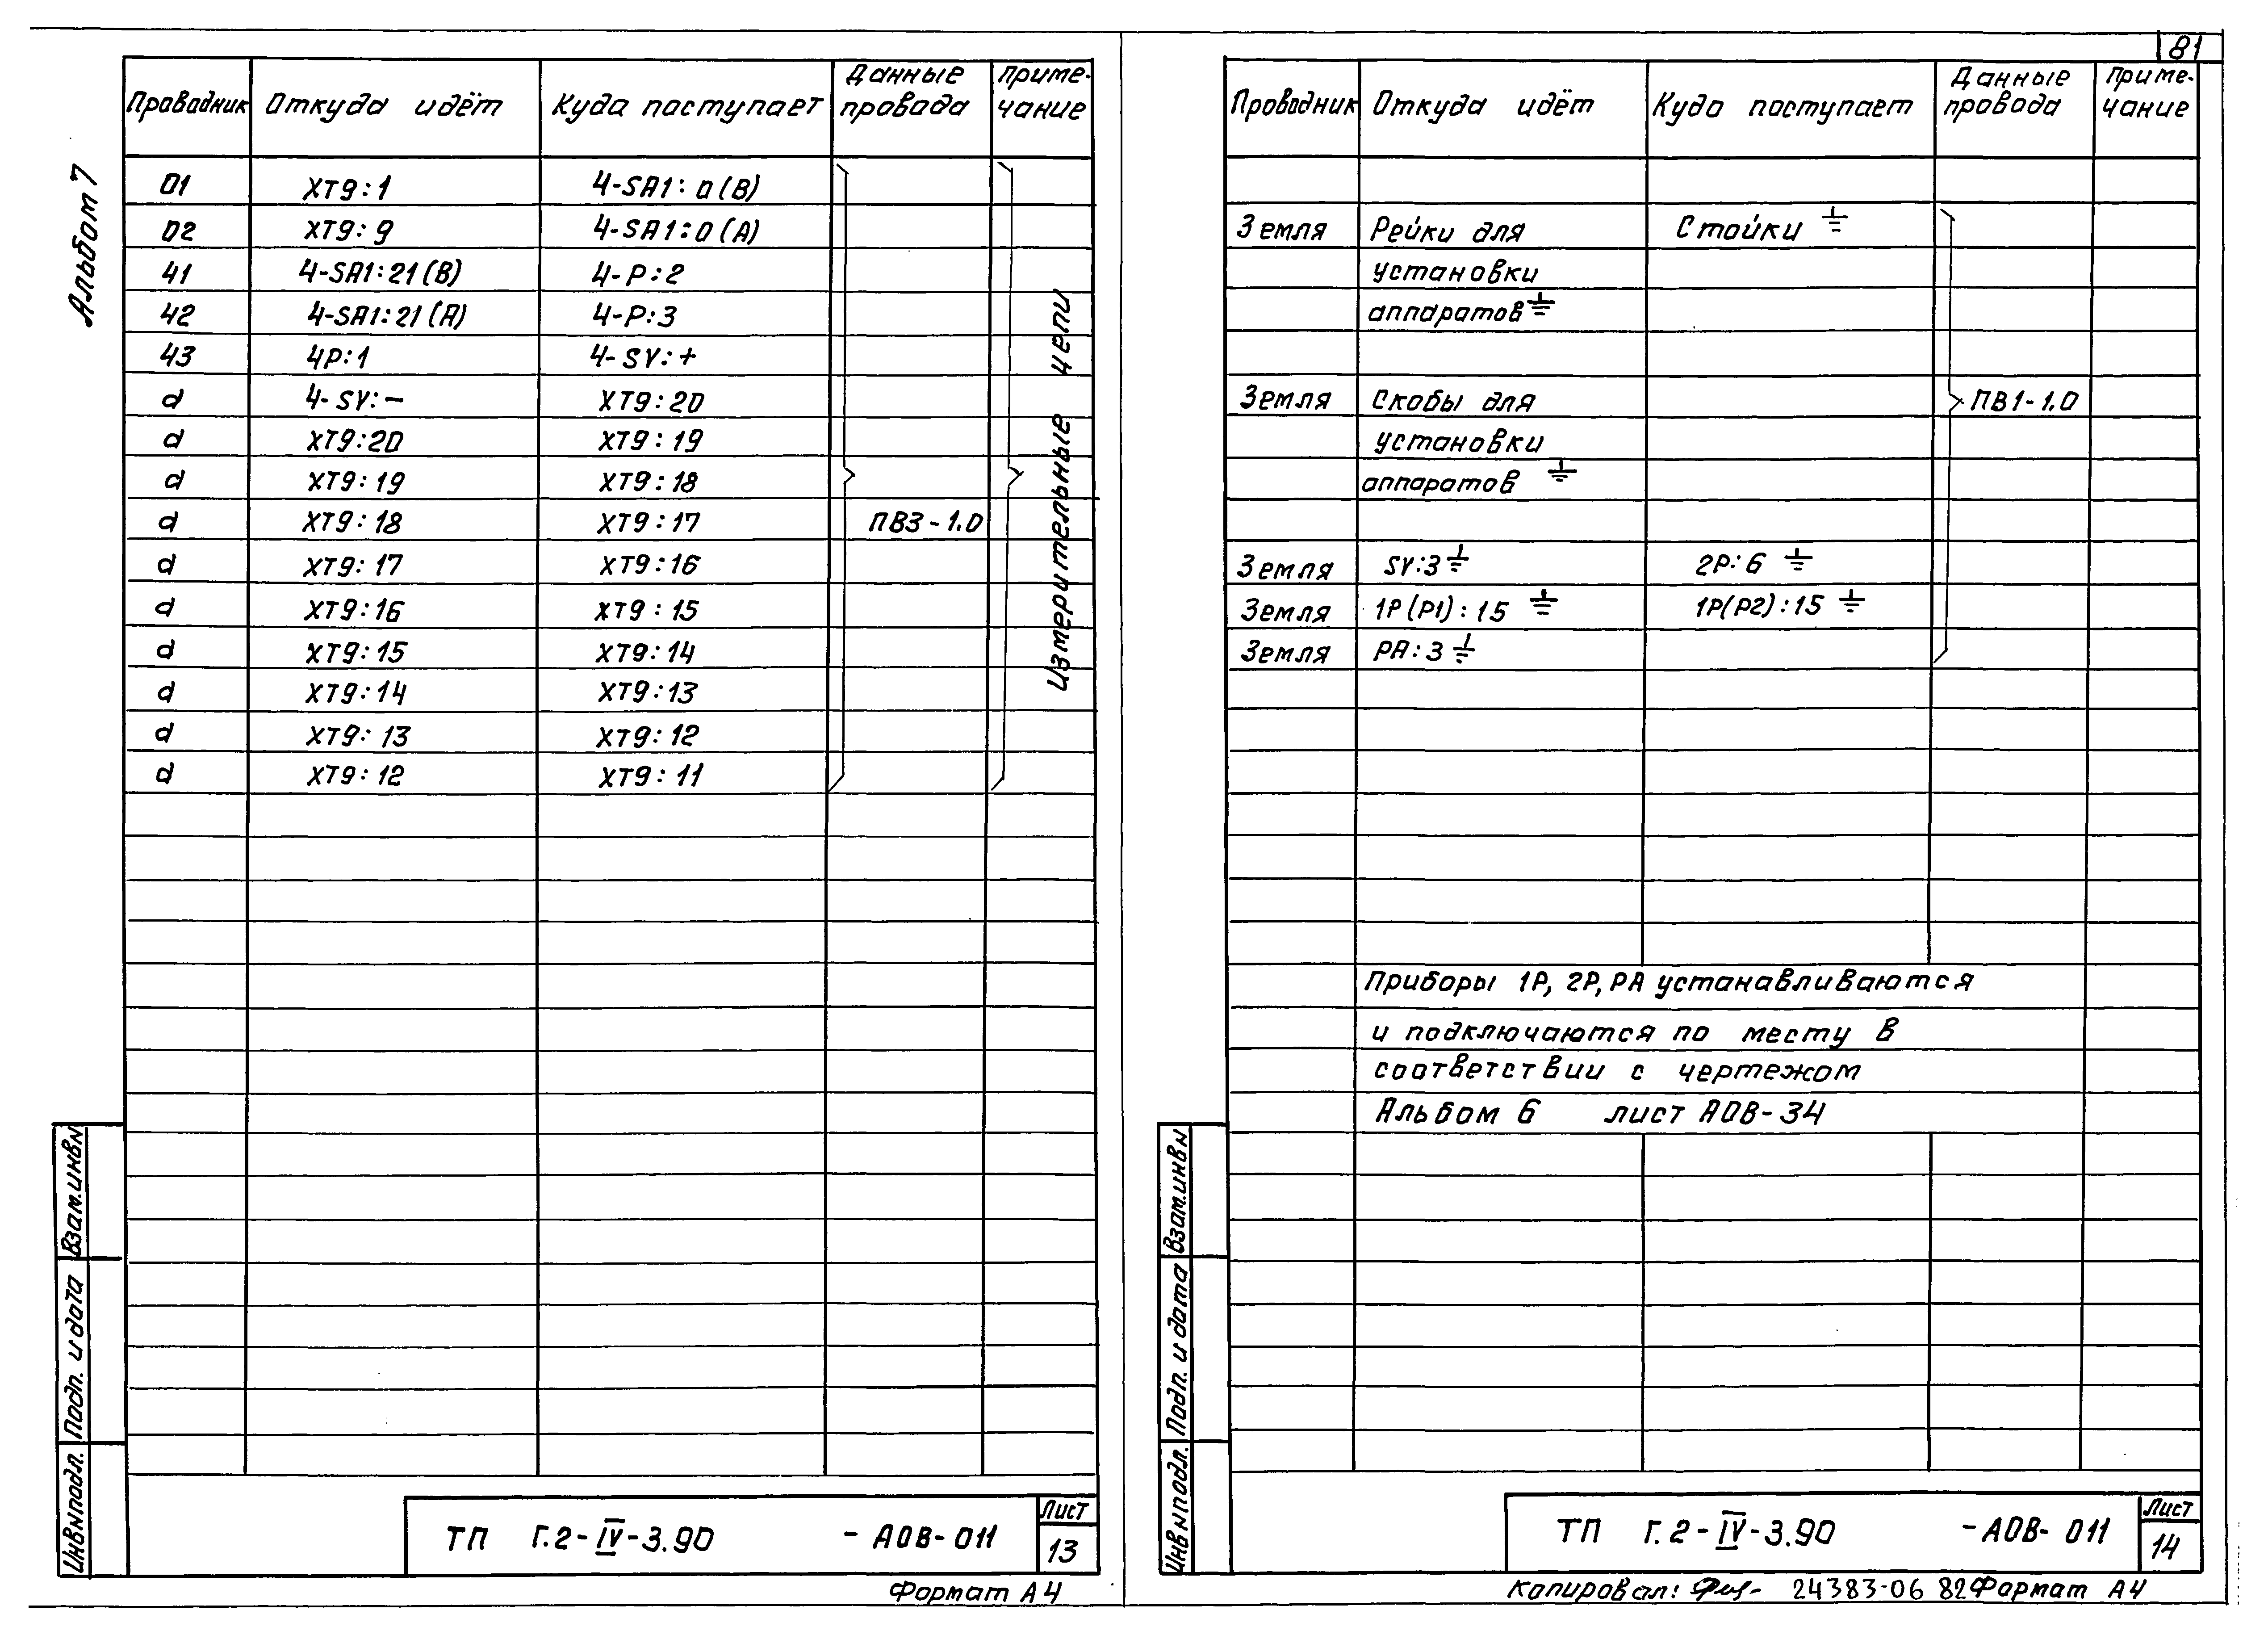 81
Альбом 7
Проводник Откуда идёт Куда поступает Данные провода Приме-чание
01 XT9:1 4-SA1:0(B)
02 XT9:9 4-SA1:0(A)
41 4-SA1:21(B) 4-P:2
42 4-SA1:21(A) 4-P:3
43 4P:1 4-SY:+
d 4-SY:− XT9:20
d XT9:20 XT9:19
d XT9:19 XT9:18
d XT9:18 XT9:17 ПВ3-1.0
d XT9:17 XT9:16
d XT9:16 XT9:15
d XT9:15 XT9:14
d XT9:14 XT9:13
d XT9:13 XT9:12
d XT9:12 XT9:11
Измерительные цепи
Взам.инвN
Подп. и дата
ИнвNподл.
ТП Г.2-IV-3.90 -АОВ-011
Лист
13
Формат А4
Проводник Откуда идёт Куда поступает Данные провода Приме-чание
Земля Рейки для Стойки ⏚
установки
аппаратов ⏚
Земля Скобы для ПВ1-1.0
установки
аппаратов ⏚
Земля SY:3 ⏚ 2P:6 ⏚
Земля 1P(P1):15 ⏚ 1P(P2):15 ⏚
Земля PA:3 ⏚
Приборы 1P, 2P, PA устанавливаются
и подключаются по месту в
соответствии с чертежом
Альбом 6 лист АОВ-34
Взам.инвN
Подп. и дата
ИнвNподл.
ТП Г.2-IV-3.90 -АОВ-011
Лист
14
Копировал: 24383-06 82 Формат А4